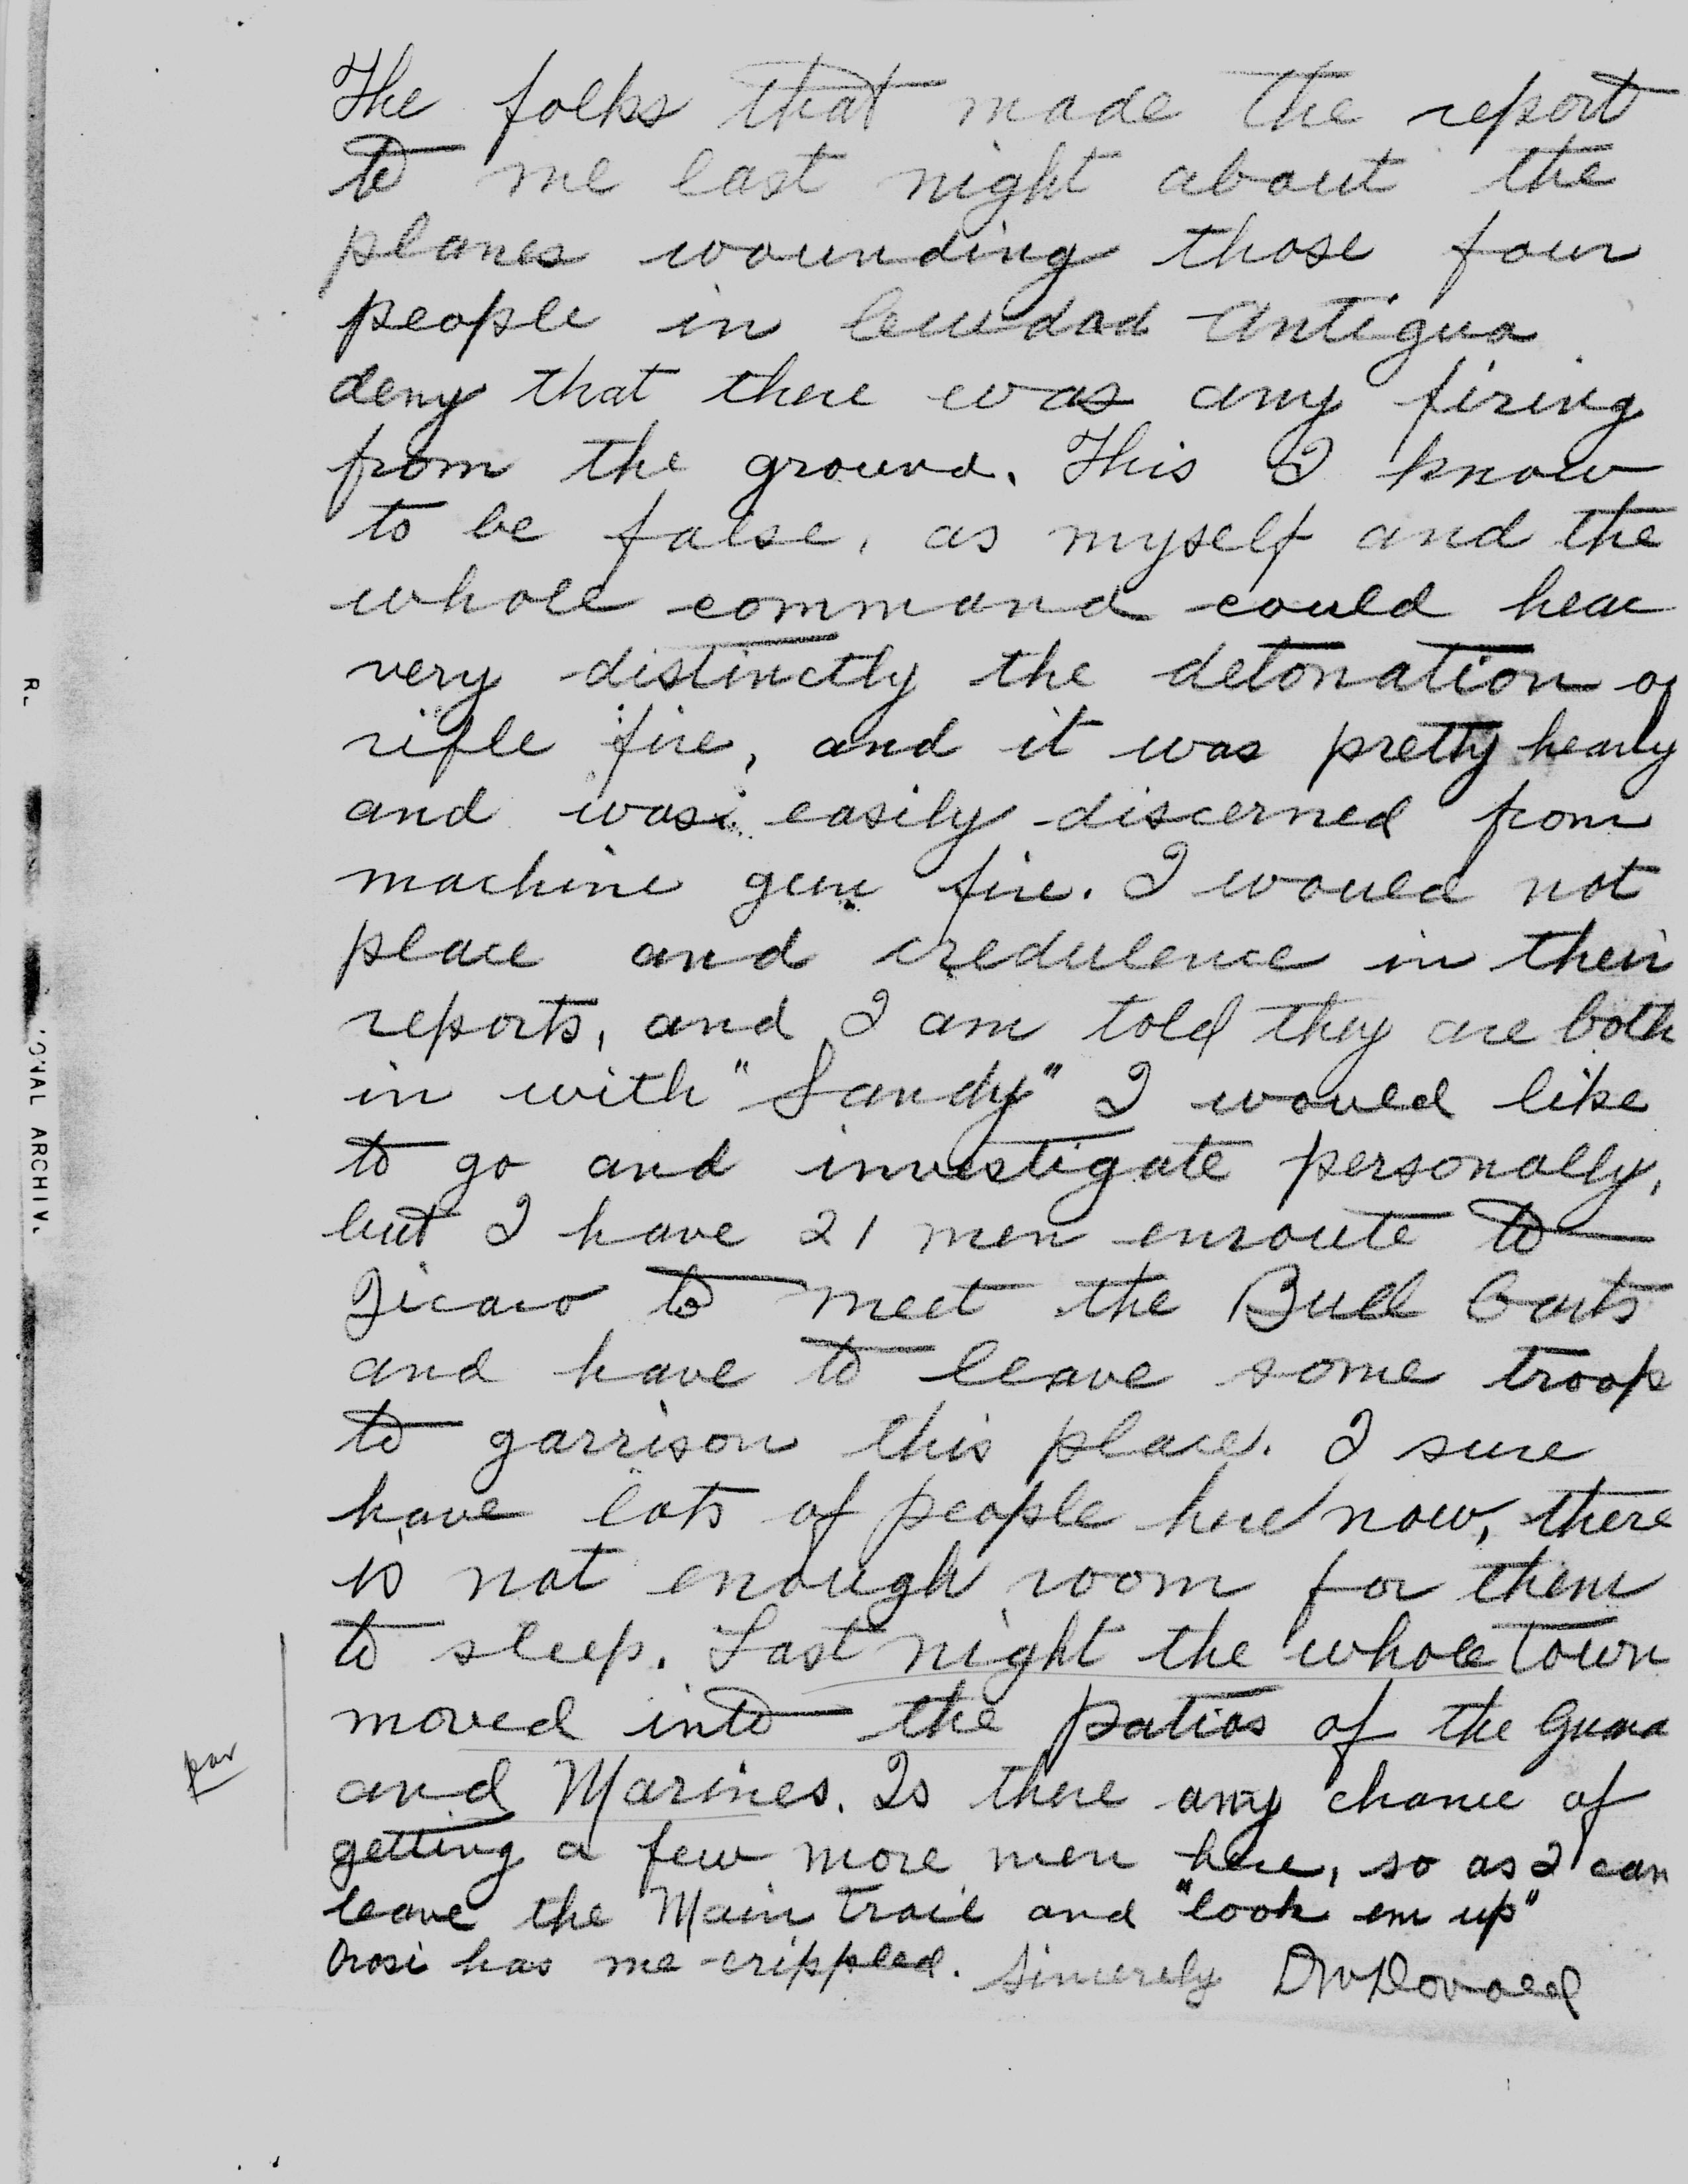 The folks that made the report
to me last night about the
planes wounding those four
people in Ciudad Antigua
deny that there was any firing
from the ground. This I know
to be false, as myself and the
whole command could hear
very distinctly the detonation of
rifle fire, and it was pretty heavy
and was easily discerned from
machine gun fire. I would not
place and credulence in their
reports, and I am told they are both
in with "Sandy" I would like
to go and investigate personally,
but I have 21 men enroute to
Jicaro to meet the Bull Carts
and have to leave some troops
to garrison this place. I sure
have lots of people here now, there
is not enough room for them
to sleep. Last night the whole town
moved into the patios of the
and Marines. Is there any chance of
getting a few more men here, so as I can
leave the Main trail and "look em up"
has me crippled. Sincerely
par
R.
IONAL ARCHIV.